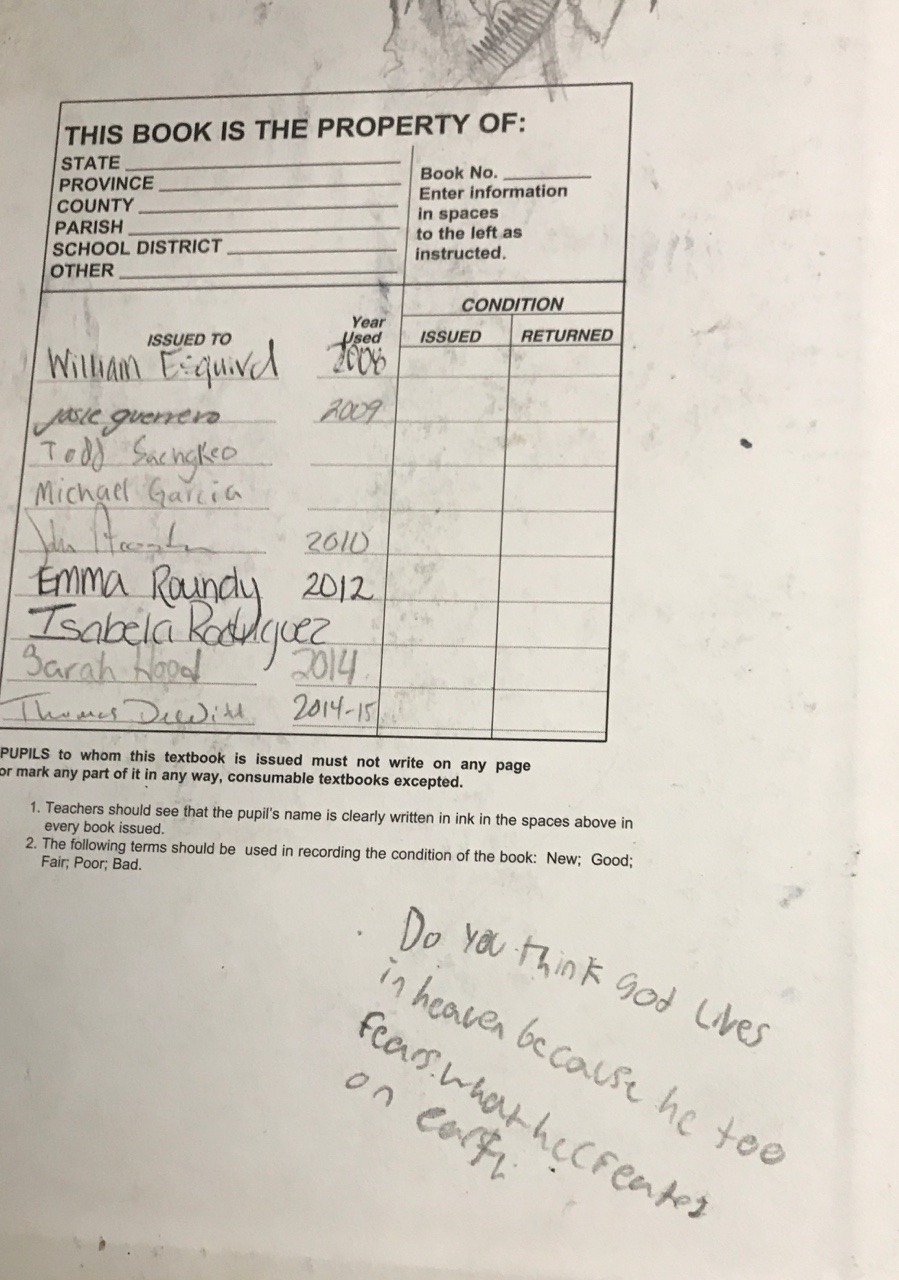 THIS BOOK IS THE PROPERTY OF:
STATE
PROVINCE
COUNTY
PARISH
SCHOOL DISTRICT
OTHER
Book No.
Enter information
in spaces
to the left as
instructed.
ISSUED TO
Year
Used
CONDITION
ISSUED
RETURNED
William Esquivel 2008
josie guerrero 2009
Todd Saengkeo
Michael Garcia
John 2010
Emma Roundy 2012
Isabela Rodriguez
Sarah Hood 2014
Thomas DeWitt 2014-15
PUPILS to whom this textbook is issued must not write on any page
or mark any part of it in any way, consumable textbooks excepted.
1. Teachers should see that the pupil's name is clearly written in ink in the spaces above in
every book issued.
2. The following terms should be used in recording the condition of the book: New; Good;
Fair; Poor; Bad.
Do you think god lives
in heaven because he too
fears what he creates
on earth